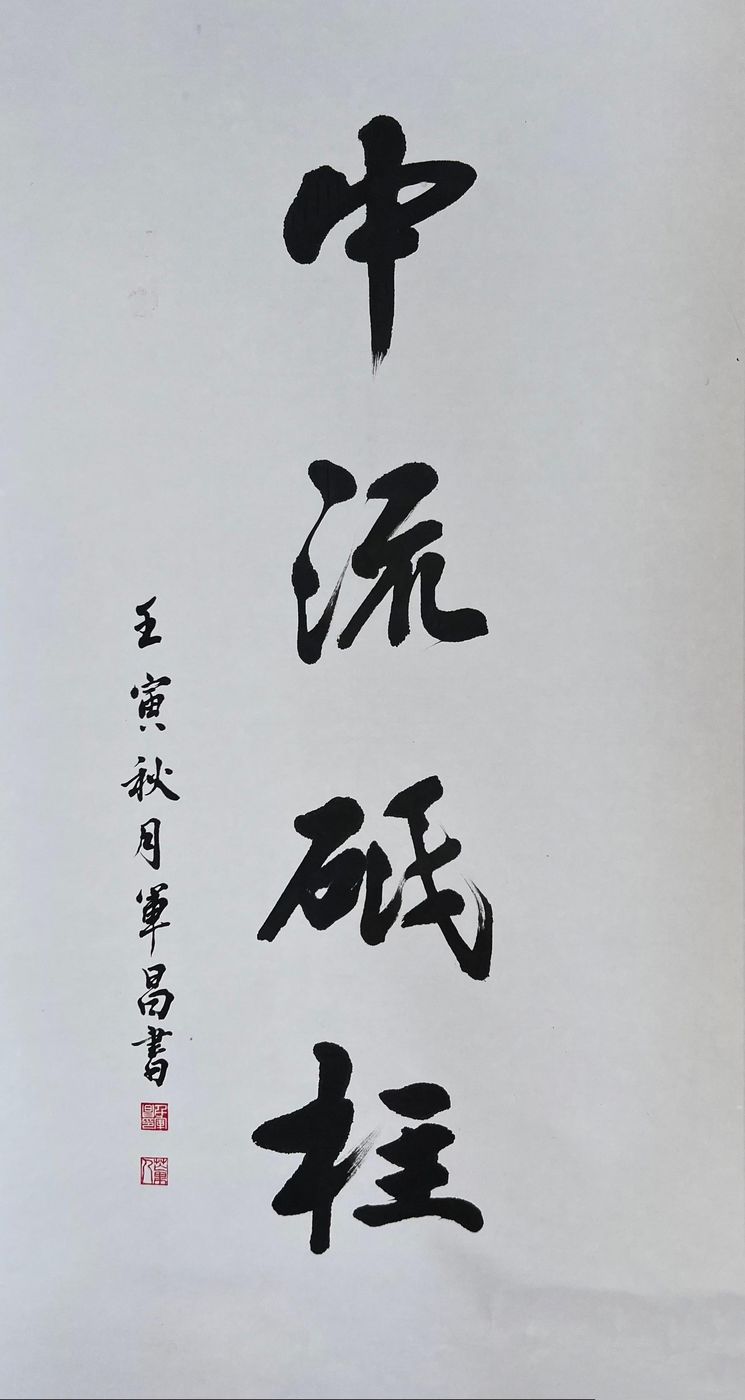 中流砥柱
壬寅秋月軍昌書